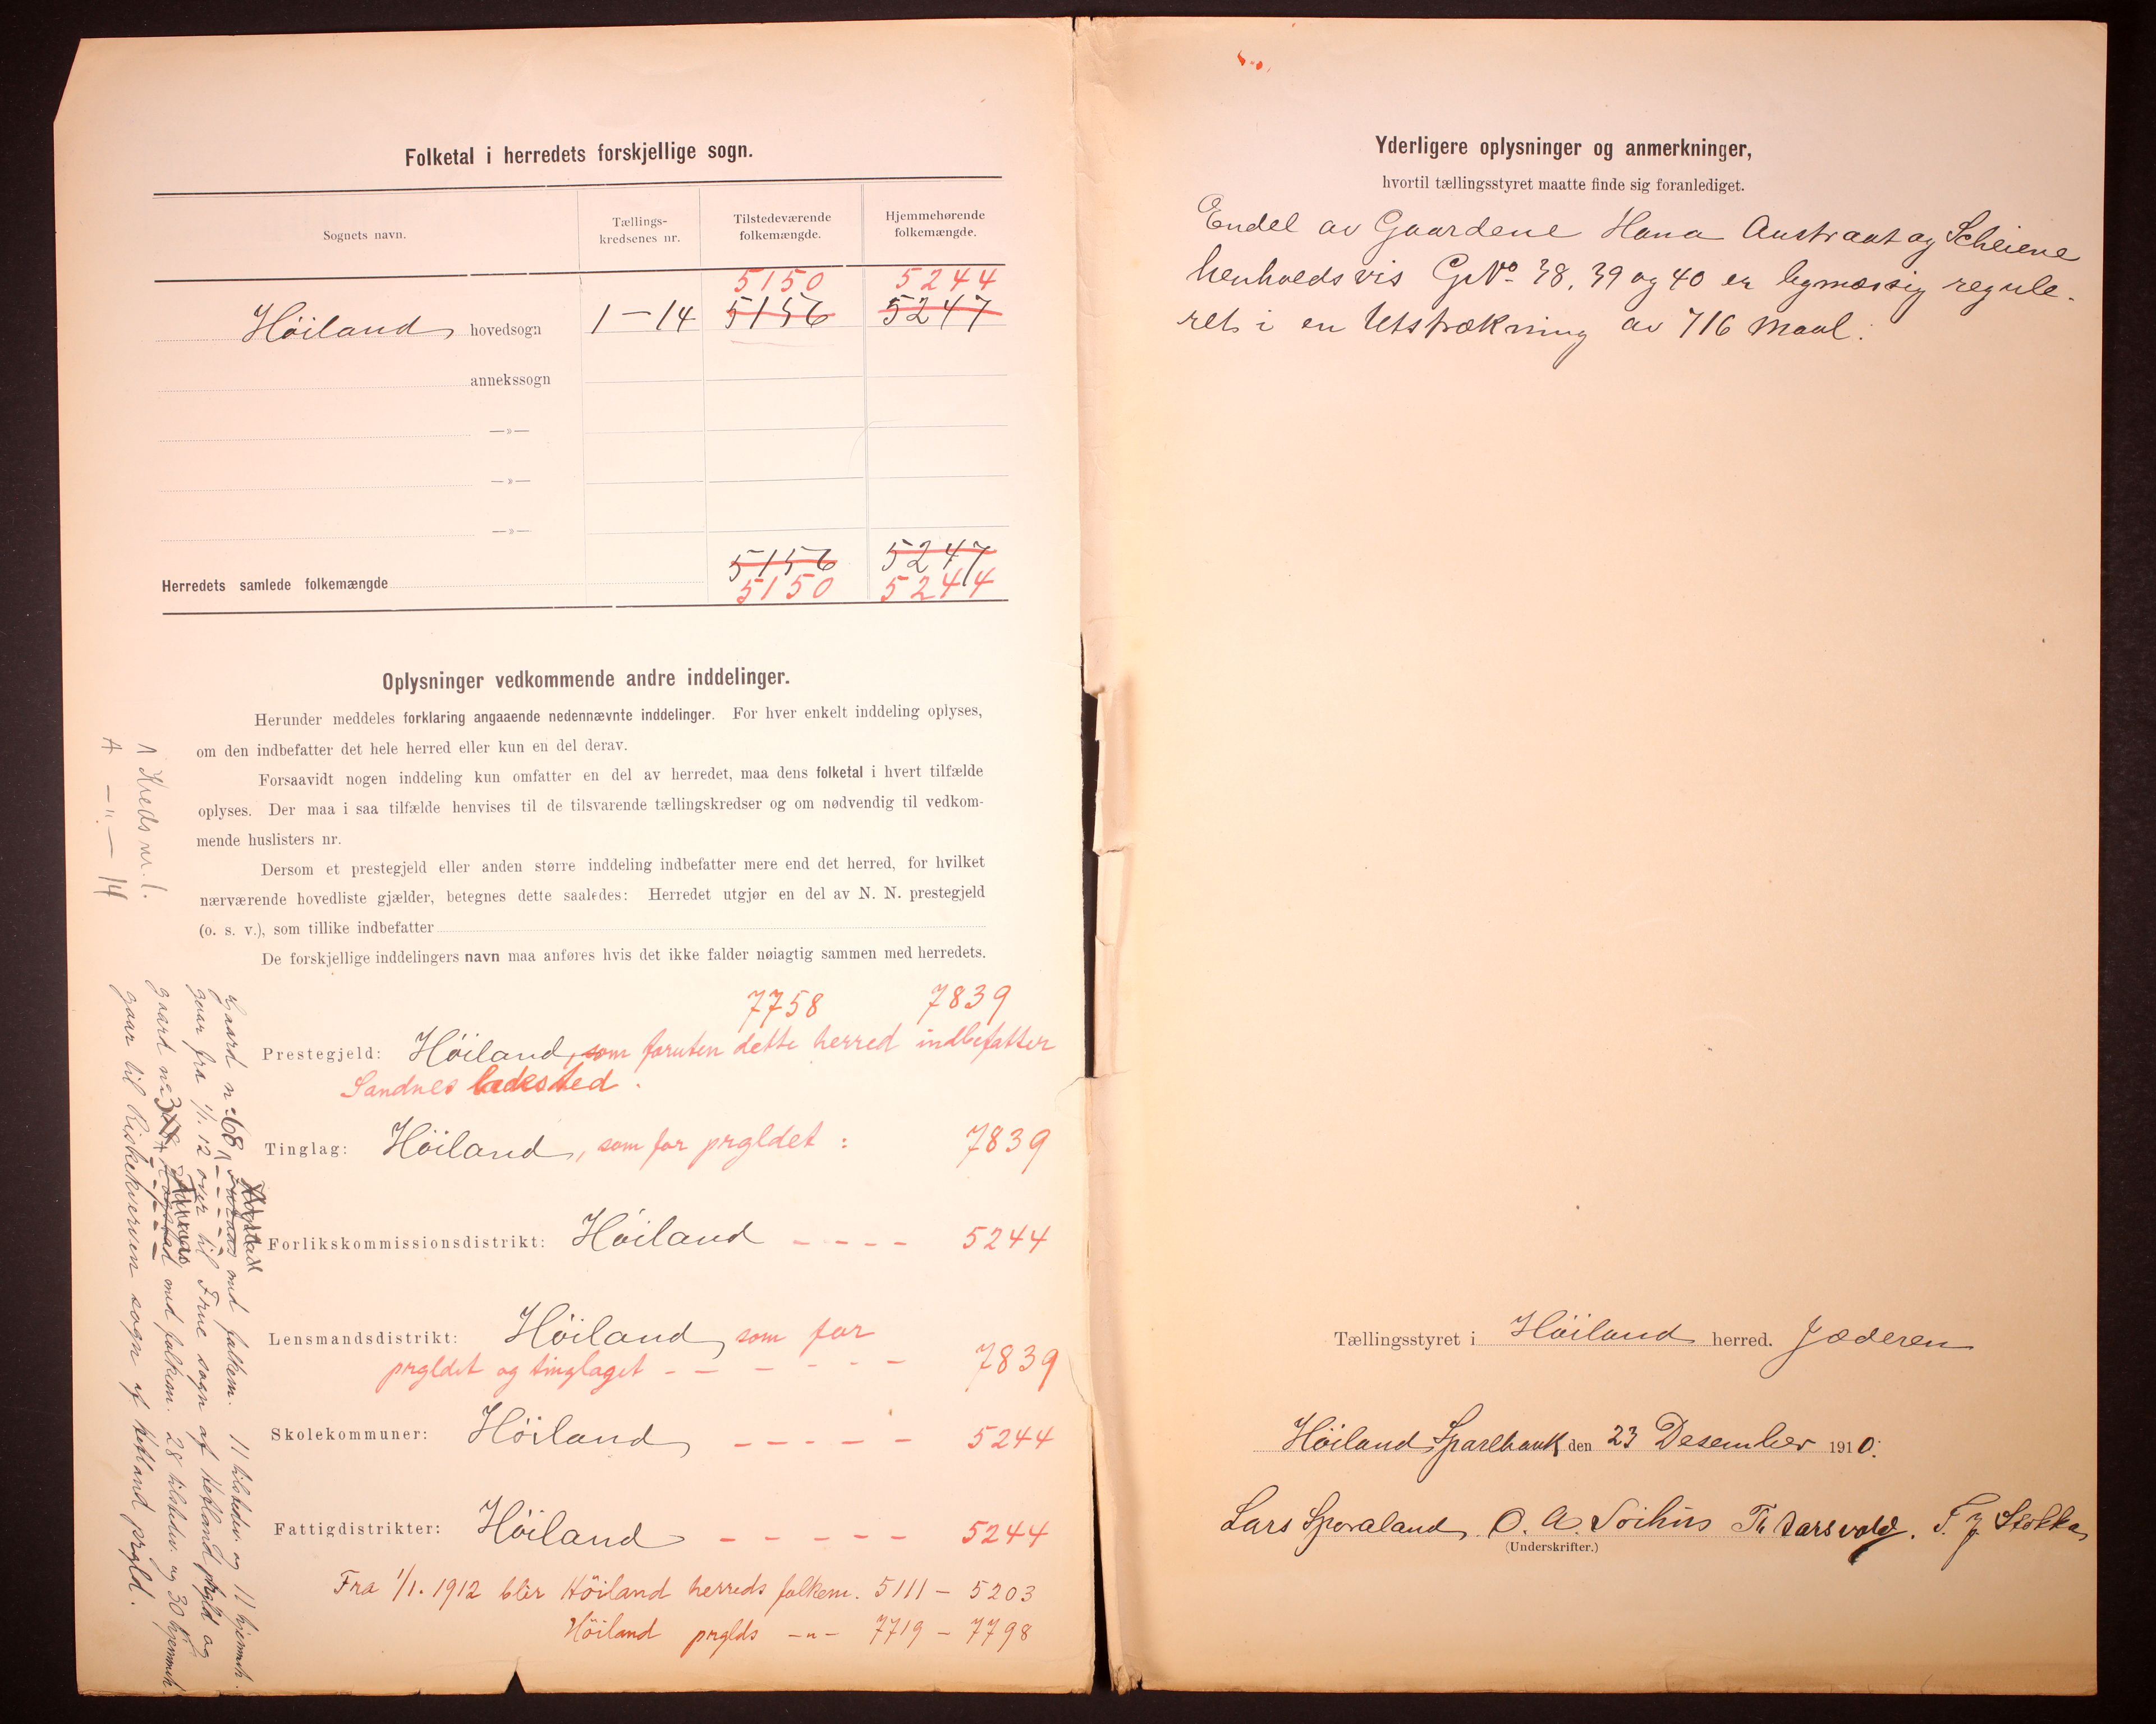 Folketal i herredets forskjellige sogn.
Sognets navn.
Tællings-
kredsenes nr.
Tilstedeværende
folkemængde.
Hjemmehørende
folkemængde.
5150 5244
Höiland hovedsogn 1-14 5156 5247
annekssogn
—»—
—»—
—»—
5156 5247
Herredets samlede folkemængde
5150 5244
Oplysninger vedkommende andre inddelinger.
Herunder meddeles forklaring angaaende nedennævnte inddelinger. For hver enkelt inddeling oplyses,
om den indbefatter det hele herred eller kun en del derav.
Forsaavidt nogen inddeling kun omfatter en del av herredet, maa dens folketal i hvert tilfælde
oplyses. Der maa i saa tilfælde henvises til de tilsvarende tællingskredser og om nødvendig til vedkom-
mende huslisters nr.
Dersom et prestegjeld eller anden større inddeling indbefatter mere end det herred, for hvilket
nærværende hovedliste gjælder, betegnes dette saaledes: Herredet utgjør en del av N. N. prestegjeld
(o. s. v.), som tillike indbefatter
De forskjellige inddelingers navn maa anføres hvis det ikke falder nøiagtig sammen med herredets.
7758 7839
Prestegjeld: Höiland, som foruten dette herred indbefatter
Sandnes ladested.
Tinglag: Höiland, som for prgldet : 7839
Forlikskommissionsdistrikt: Höiland - - - - 5244
Lensmandsdistrikt: Höiland som for
prgldet og tinglaget - - - - - - 7839
Skolekommuner: Höiland - - - - - 5244
Fattigdistrikter: Höiland - - - - - 5244
Fra 1/1. 1912 blir Höiland herreds folkem. 5111 - 5203
Höiland prglds -"- 7719 - 7798
1 Kreds nr. 1.
A —"— 14
Gaard nr. 68, med folkem. 11 tilstedev. og 11 hjemmeh.
gaar fra 1/1. 12 over til Frue sogn af Hetland prgld og
gaard nr. med folkem. 28 tilstedev. og 30 hjemmeh.
gaar til Riskekverven sogn af Hetland prgld.
Yderligere oplysninger og anmerkninger,
hvortil tællingsstyret maatte finde sig foranlediget.
Endel av Gaardene Hana Austraat og Scheiene
henholdsvis GNo 38, 39 og 40 er bymæssig regule-
ret i en Utstrækning av 716 Maal.
Tællingsstyret i Höiland herred. Jæderen
Höiland Sparebank den 23 Desember 1910.
Lars Sporaland O. A. Soihus Th Aarsvold. T. J. Stokka
(Underskrifter.)